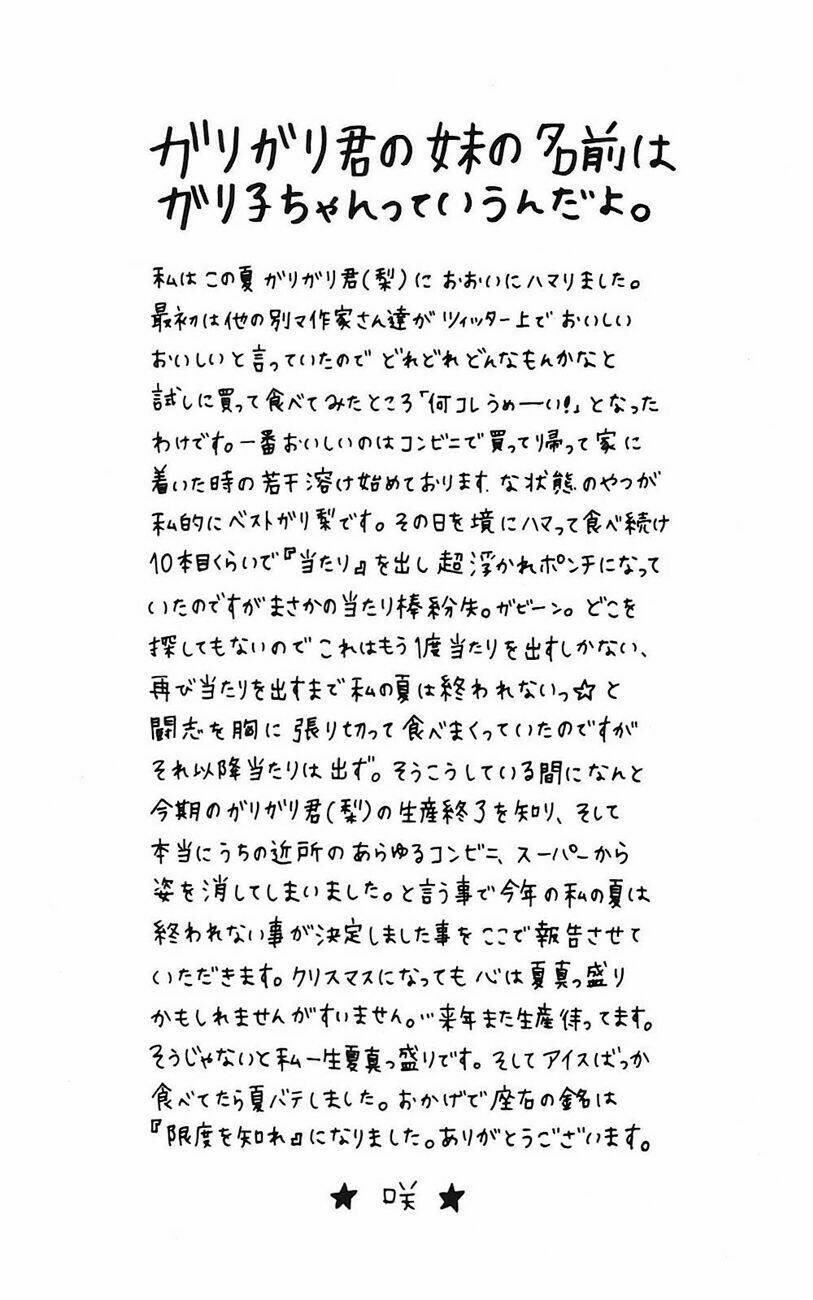 ガリガリ君の妹の名前は
ガリ子ちゃんっていうんだよ。
私はこの夏ガリガリ君(梨)におおいにハマりました。
最初は他の別マ作家さん達がツィッター上でおいしい
おいしいと言っていたのでどれどれどんなもんかなと
試しに買って食べてみたところ「何コレうめーい!」となった
わけです。一番おいしいのはコンビニで買って帰って家に
着いた時の若干溶け始めております、な状態のやつが
私的にベストガリ梨です。その日を境にハマって食べ続け
10本目くらいで『当たり』を出し超浮かれポンチになって
いたのですがまさかの当たり棒紛失。ガビーン。どこを
探してもないのでこれはもう1度当たりを出すしかない、
再び当たりを出すまで私の夏は終われないっ☆と
闘志を胸に張り切って食べまくっていたのですが
それ以降当たりは出ず。そうこうしている間になんと
今期のガリガリ君(梨)の生産終了を知り、そして
本当にうちの近所のあらゆるコンビニ、スーパーから
姿を消してしまいました。と言う事で今年の私の夏は
終われない事が決定しました事をここで報告させて
いただきます。クリスマスになっても心は夏真っ盛り
かもしれませんがすいません。…来年また生産待ってます。
そうじゃないと私一生夏真っ盛りです。そしてアイスばっか
食べてたら夏バテしました。おかげで座右の銘は
『限度を知れ』になりました。ありがとうございます。
★ 咲 ★